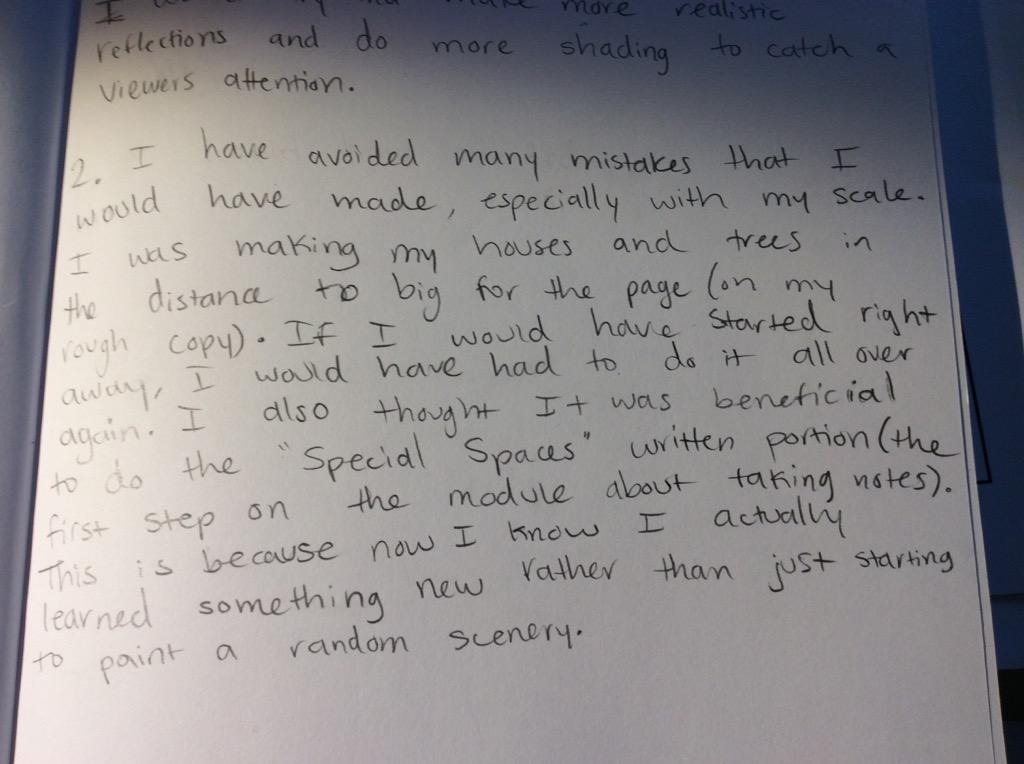 I more realistic
reflections and do more shading to catch a
viewers attention.
2. I have avoided many mistakes that I
would have made, especially with my scale.
I was making my houses and trees in
the distance to big for the page (on my
rough copy). If I would have started right
away, I would have had to do it all over
again. I also thought It was beneficial
to do the "Special Spaces" written portion (the
first step on the module about taking notes).
This is because now I know I actually
learned something new rather than just starting
to paint a random scenery.